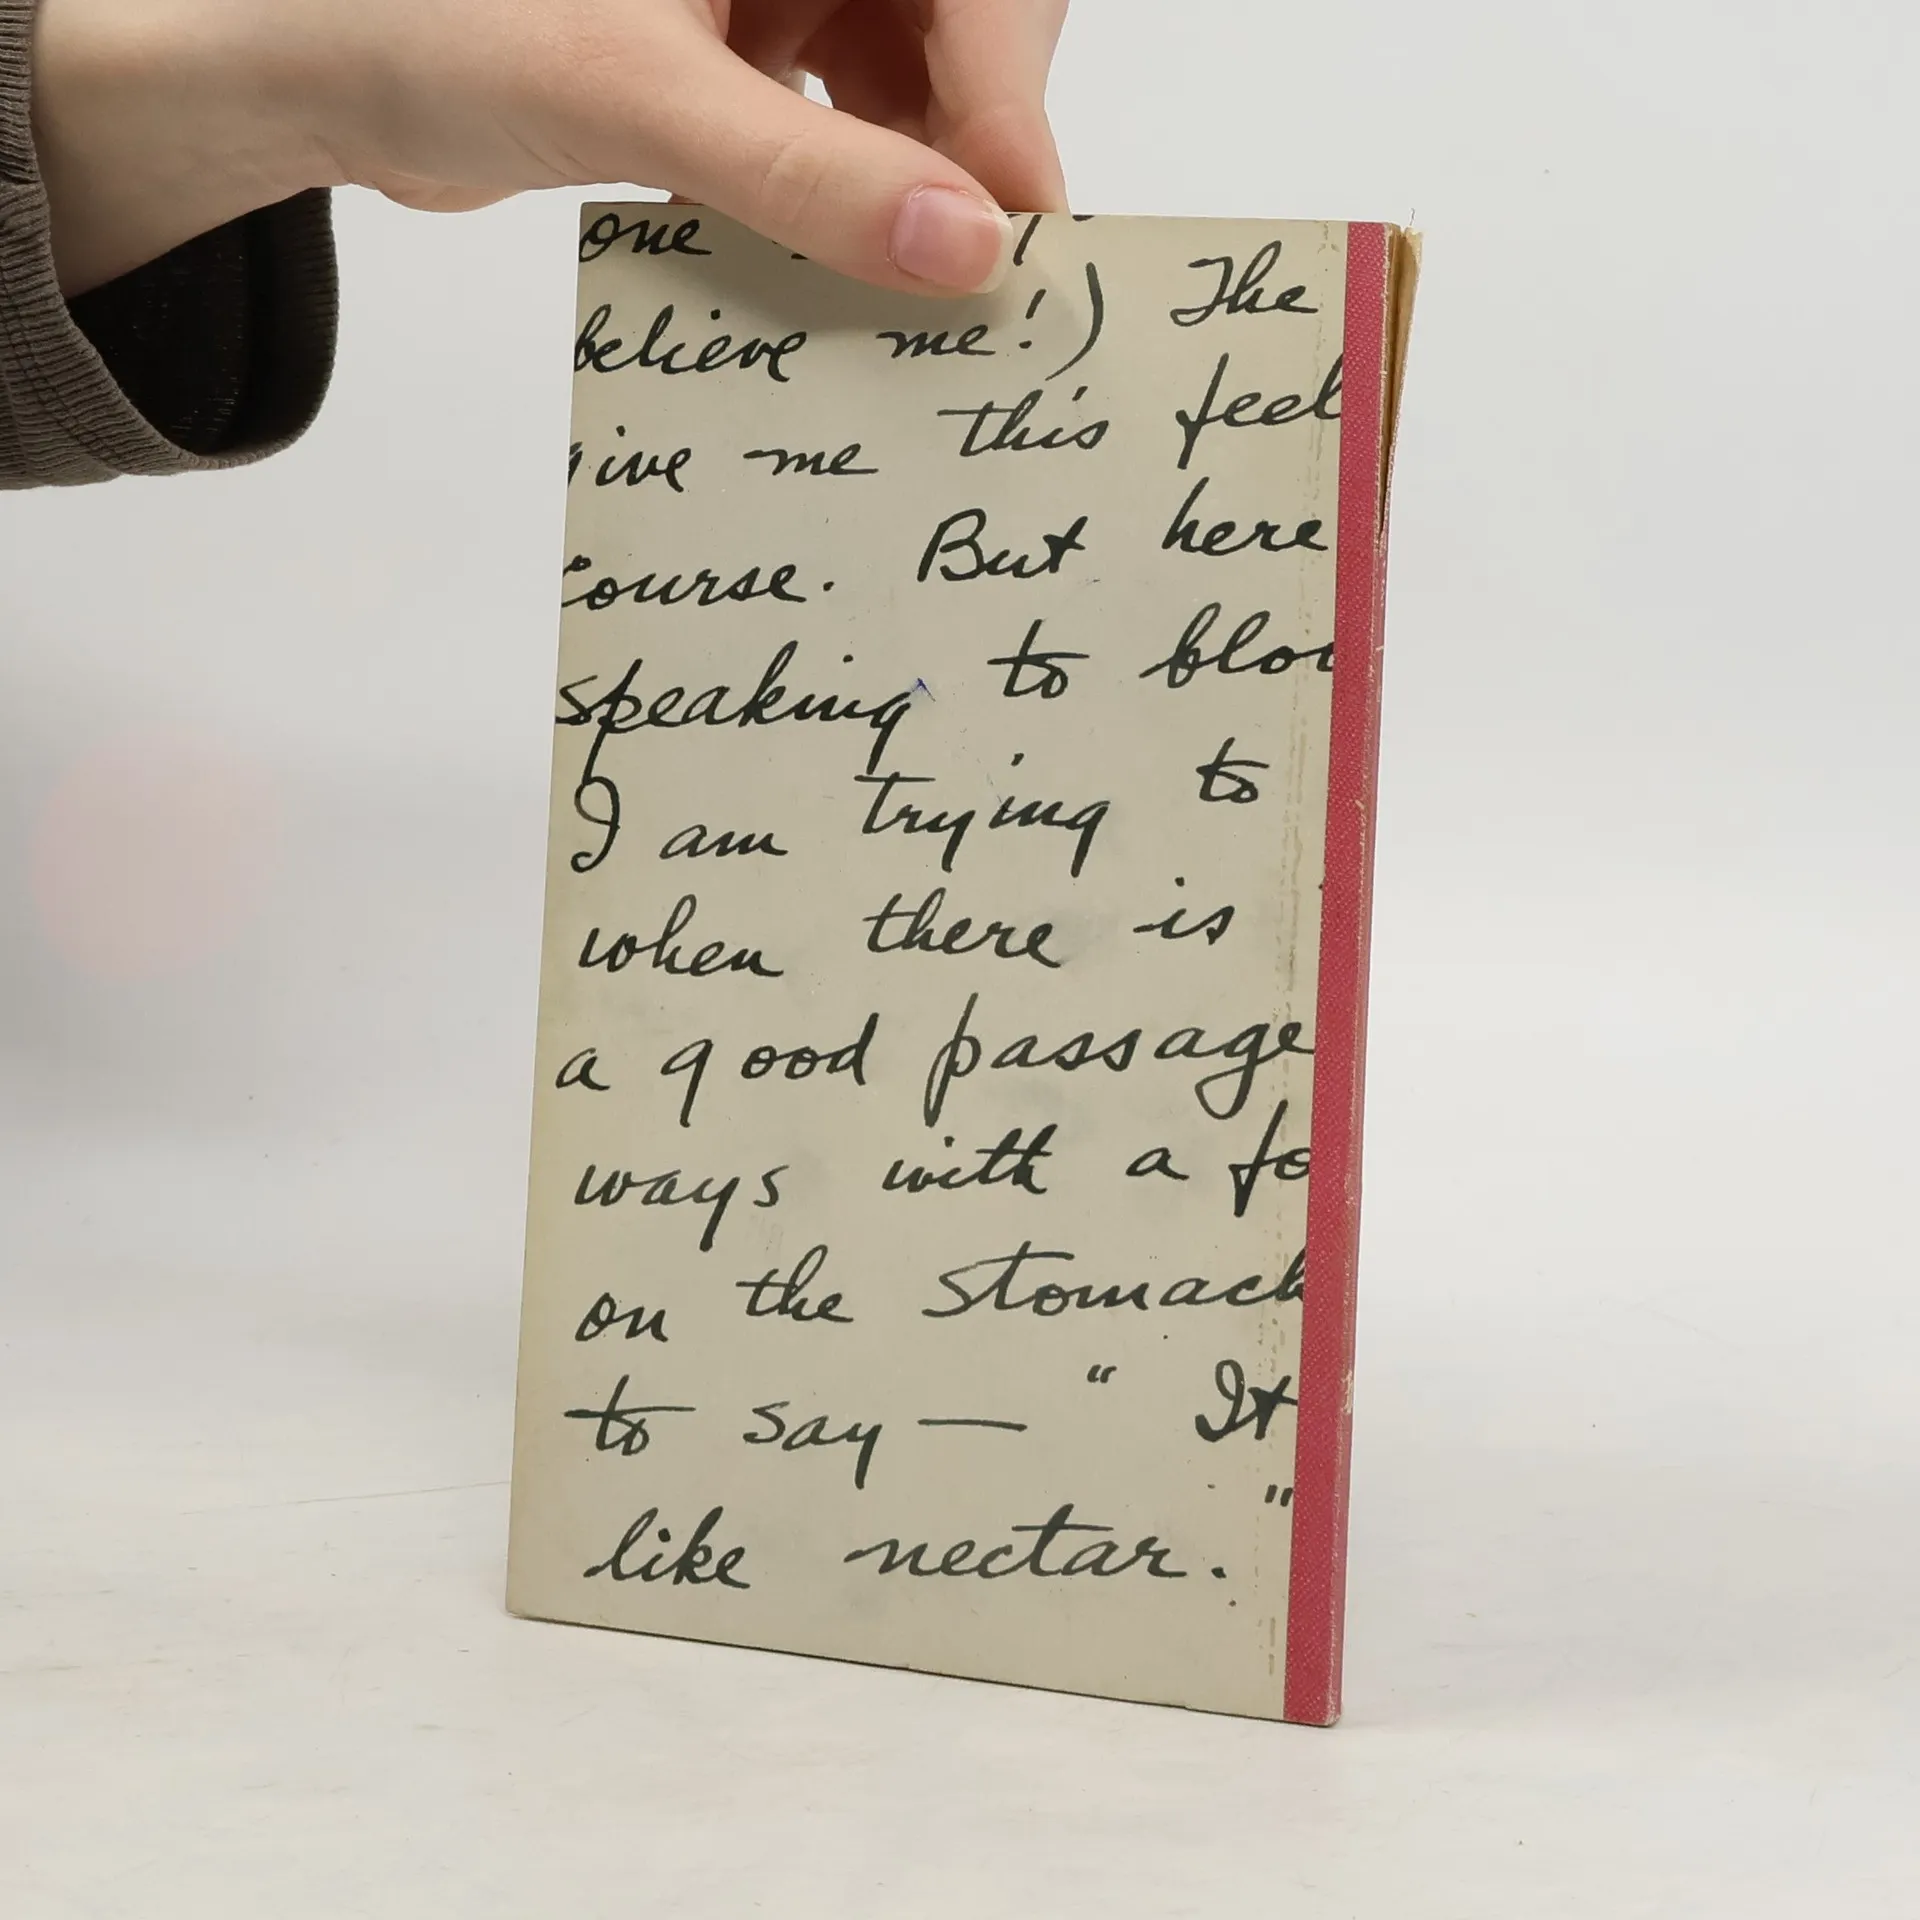 one
believe me!) The
give me this feel
course. But here
speaking to blou
I am trying to
when there is
a good passage
ways with a fo
on the stomach
to say — " It
like nectar."